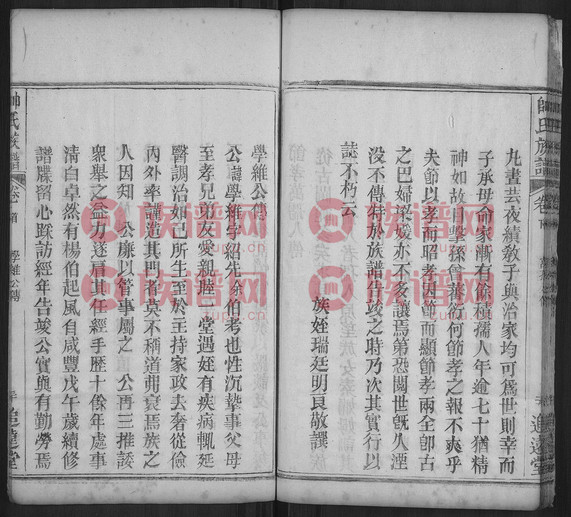 帥氏族譜
卷
追遠堂
丸晝芸夜績敎子與治家均可為世則幸而
子承母命家漸有餘積孺人年逾七十猶精
神如故目擊孫曾蕃衍何節孝之報不爽乎
夫節以孝而昭孝因節而顯節孝兩全卽古
之巴婦梁媛亦不多讓焉第恐閱世旣人湮
没不傳特於族譜告竣之時乃次其實行以
誌不朽云
族姪瑞廷明良敬譔
學維公傳
公諱學維字紹先徐伯考也性沉摯事父母
至孝兄弟友愛親睦一堂遇姪有疾病輒延
醫調治如己所生至於主持家政去奢從儉
内外率謹造其門者莫不稱道弗衰焉族之
人因知公廉以管事屬之公再三推諉
衆舉之益力遂肩其任經手歷十餘年處事
清白卓然有楊伯起風自咸豐戊午歲續修
譜牒留心踩訪經年告竣公實與有勤勞焉
帥氏族譜
卷首
學維公傳
追遠堂
族谱网
zupu.cn